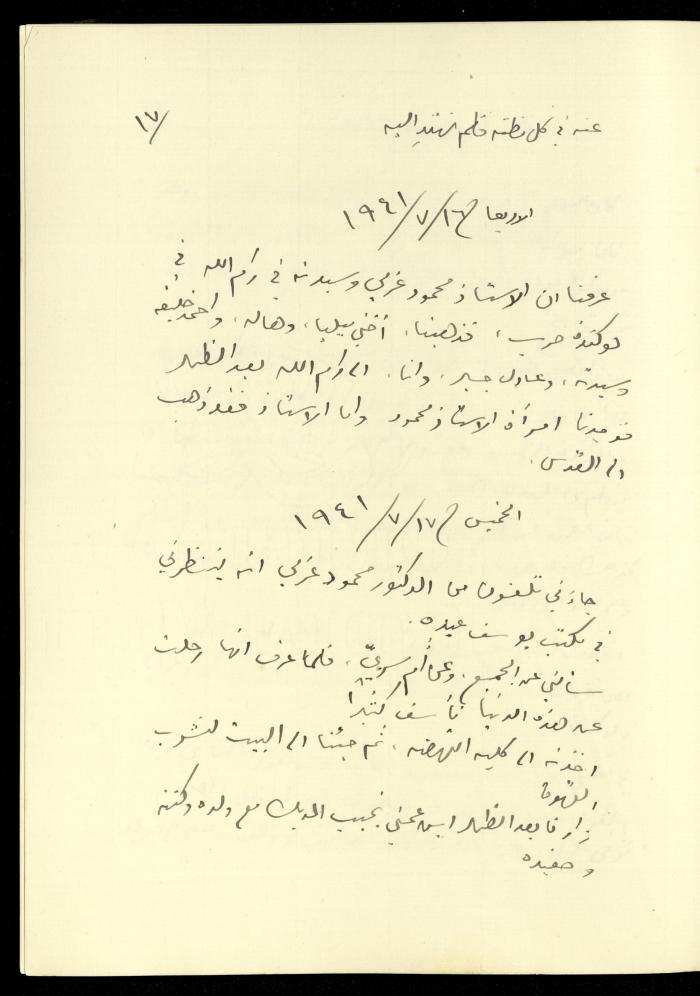 ١٧/
عنه في كل مظنه فلم نهتدِ اليه
الاربعا ١٦/٧/١٩٤١
عرفنا ان الاستاذ محمود عزمي وسيدته في رام الله في
لوكندة حرب، فذهبنا، أختي ميليا، وهاله، واحمد خليفه
وسيدته، وعادل جبر، وانا، الى رام الله بعد الظهر
فوجدنا امرأة الاستاذ محمود واما الاستاذ فقد ذهب
الى القدس.
الخميس ١٧/٧/١٩٤١
جاءني تلفون من الدكتور محمود عزمي انه ينتظرني
في مكتب يوسف عبده.
سألني عن الجميع، وعن أم سري، فلما عرف انها رحلت
عن هذه الدنيا تأسف كثيرا
اخذته الى كلية النهضه، ثم جئنا الى البيت لنشرب
القهوة
زارنا بعد الظهر ابن عمتي نجيب الديك مع ولده وكنته
وحفيده